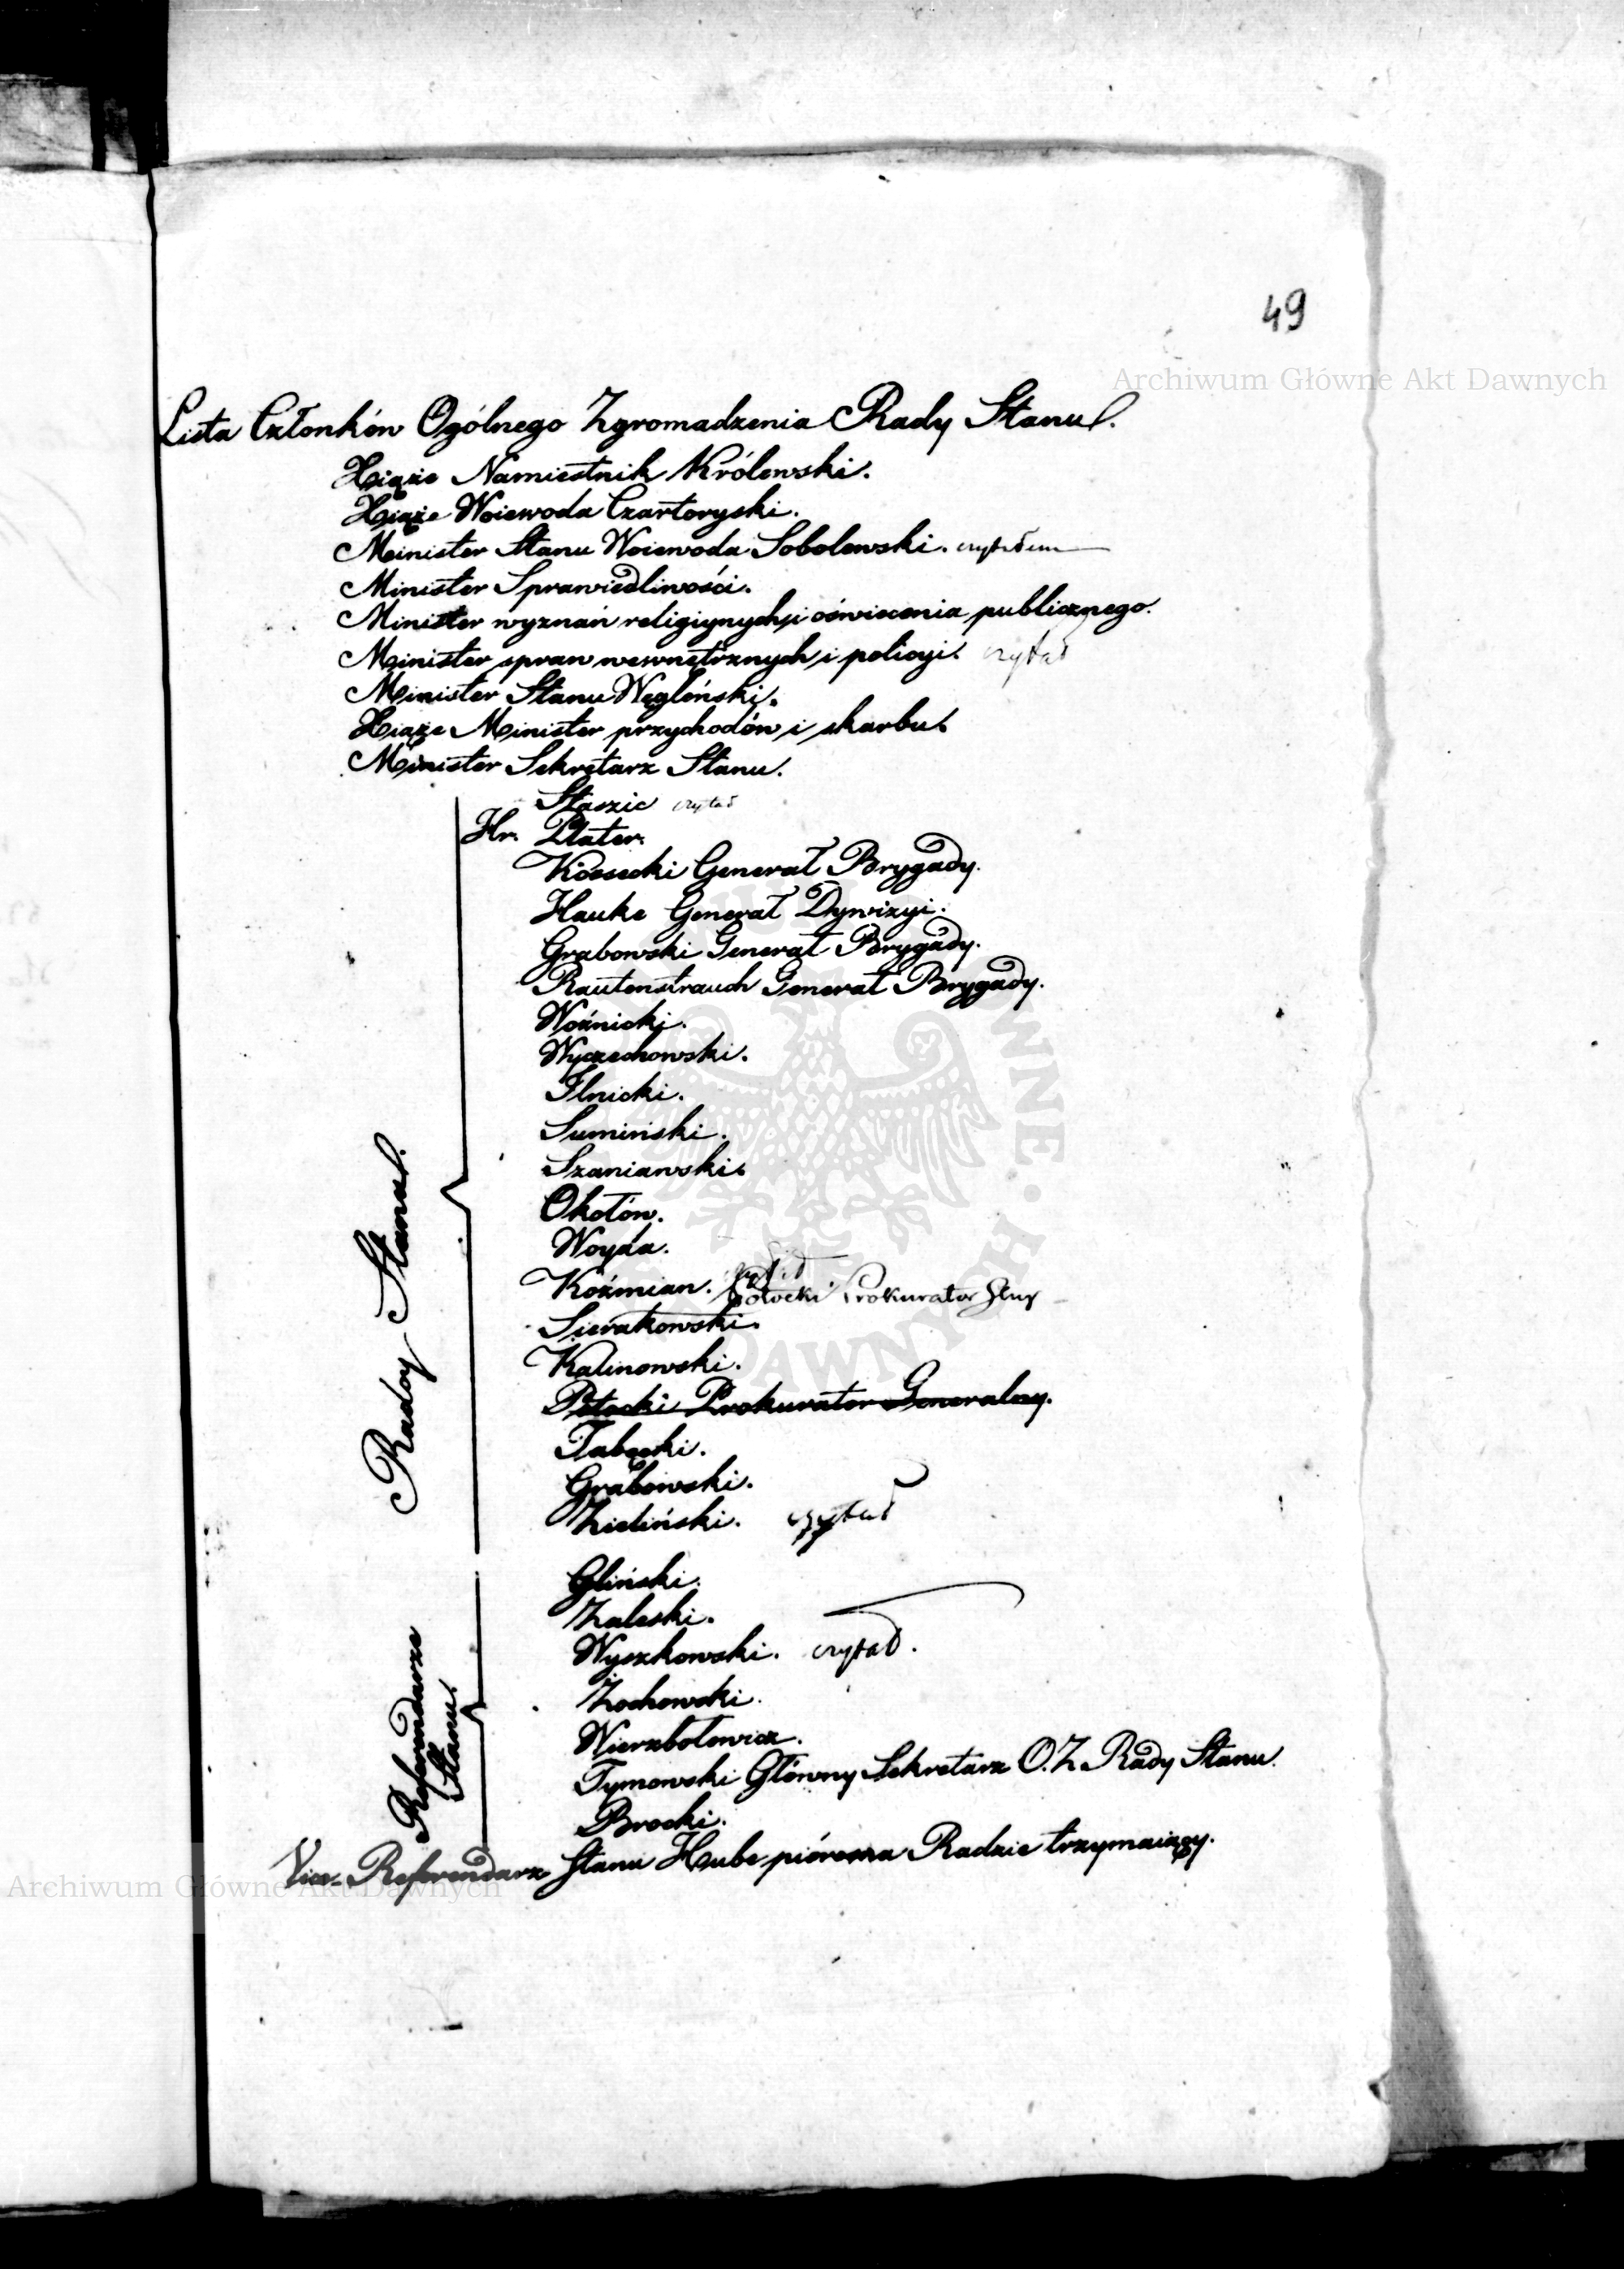 49
Archiwum Główne Akt Dawnych
Lista Członków Ogólnego Zgromadzenia Rady Stanu.
Xiąże Namiestnik Królewski.
Xiąże Woiewoda Czartoryski.
Minister Stanu Woiewoda Sobolewski. czytałem
Minister Sprawiedliwości.
Minister wyznań religiynych i oświecenia publicznego.
Minister spraw wewnętrznych i policyi. czytał
Minister Stanu Węgleński.
Xiąże Minister przychodów i skarbu.
Minister Sekretarz Stanu.
Staszic czytał
Hr. Plater.
Kossecki Generał Brygady.
Hauke Generał Dywizyi.
Grabowski Generał Brygady.
Rautenstrauch Generał Brygady.
Woźnicki.
Wyczechowski.
Ilnicki.
Sumiński.
Szaniawski.
Okołów.
Woyda.
Koźmian. czytał
Potocki Prokurator
Sierakowski.
Kalinowski.
Potocki Prokurator Generalny.
Tabęcki.
Grabowski.
Zieliński. czytał
Radcy Stanu.
Gliński.
Zaleski.
Wyszkowski. czytał.
Żochowski.
Wierzbołowicz.
Tymowski Główny Sekretarz O. Z. Rady Stanu.
Brocki.
Referendarze
Stanu.
Vice-Referendarz Stanu Hube pióro na Radzie trzymaiący.
Archiwum Główne Akt Dawnych